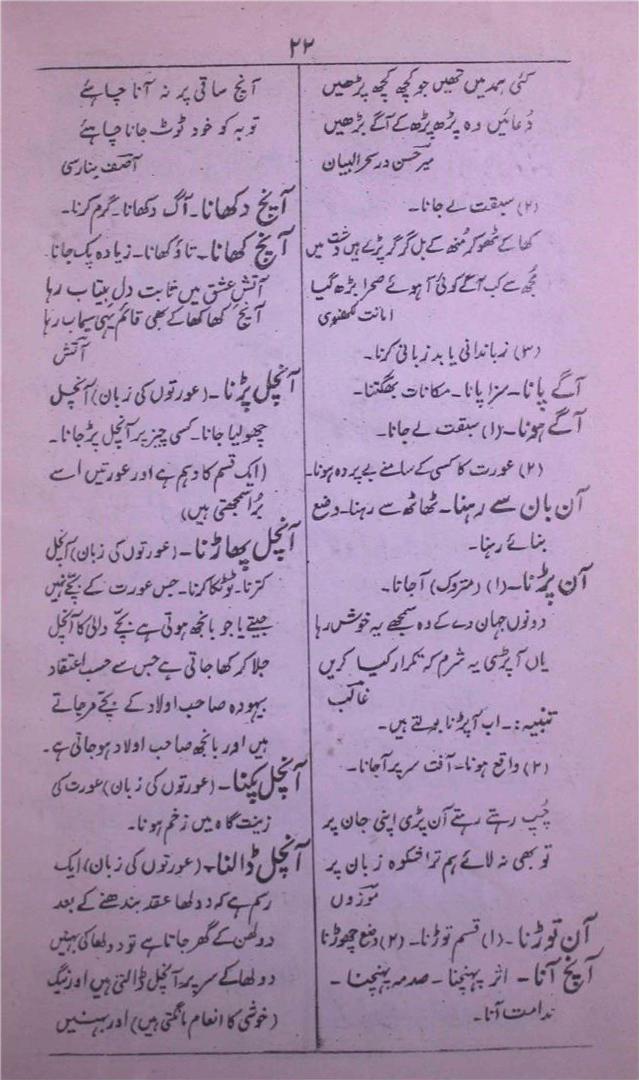 ۲۲
کئی ہمدمیں تھیں جو کچھ کچھ پڑھیں
دُعائیں وہ پڑھ پڑھ کے آگے بڑھیں
میر حسن در سحر البیان
(۲) سبقت لے جانا۔
کھا کے ٹھوکر مُنھ کے بل گر گر پڑے ہیں دشت میں
مُجھ سے کب آگے کوئی آہوئے صحرا بڑھ گیا
امانت لکھنوی
(۳) زباندانی یا بد زبانی کرنا۔
آگے پانا۔ سزا پانا۔ مکافات بھگتنا۔
آگے ہونا۔ (۱) سبقت لے جانا۔
(۲) عورت کا کسی کے سامنے بے پردہ ہونا۔
آن بان سے رہنا۔ ٹھاٹھ سے رہنا۔ وضع
بنائے رہنا۔
آن پڑنا۔ (۱) (متروک) آجانا۔
دونوں جہان دے کے وہ سمجھے یہ خوش رہا
یاں آپڑی یہ شرم کہ تکرار کیا کریں
غالب
تنبیہ:۔ اب آپڑنا بولتے ہیں۔
(۲) واقع ہونا۔ آفت سر پر آجانا۔
چُپ رہتے رہتے آن پڑی اپنی جان پر
تو بھی نہ لائے ہم ترا شکوہ زبان پر
موزوں
آن توڑنا۔ (۱) قسم توڑنا۔ (۲) وضع چھوڑنا
آنچ آنا۔ اثر پہنچنا۔ صدمہ پہنچنا۔
ندامت آنا۔
آنچ ساقی پر نہ آنا چاہئے
توبہ کو خود ٹوٹ جانا چاہئے
آصف بنارسی
آنچ دکھانا۔ آگ دکھانا۔ گرم کرنا۔
آنچ کھانا۔ تاؤ کھانا۔ زیادہ پک جانا۔
آتش عشق میں ثابت دل بیتاب رہا
آنچ کھا کھا کے بھی قائم یہی سیماب رہا
آتش
آنچل پڑنا۔ (عورتوں کی زبان) آنچل
چھو لیا جانا۔ کسی چیز پر آنچل پڑ جانا۔
(ایک قسم کا وہم ہے اور عورتیں اسے
بُرا سمجھتی ہیں)
آنچل پھاڑنا۔ (عورتوں کی زبان) آنچل
کترنا۔ ٹوٹکا کرنا۔ جس عورت کے بچّے نہیں
جیتے یا جو بانجھ ہوتی ہے بچّے والی کا آنچل
جلا کر کھا جاتی ہے جس سے حسب اعتقاد
بیہودہ صاحب اولاد کے بچّے مرجاتے
ہیں اور بانجھ صاحب اولاد ہو جاتی ہے۔
آنچل پکنا۔ (عورتوں کی زبان) عورت کی
زینت گاہ میں زخم ہونا۔
آنچل ڈالنا۔ (عورتوں کی زبان) ایک
رسم ہے کہ دولھا عقد بندھنے کے بعد
دولھن کے گھر جاتا ہے تو دولھا کی بہنیں
دولھا کے سر پر آنچل ڈالتی ہیں اور نیگ
(خوشی کا انعام مانگتی ہیں) اور بہنیں